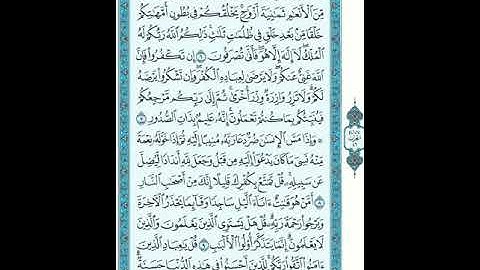 مِّنَ ٱلْأَنْعَٰمِ ثَمَٰنِيَةَ أَزْوَٰجٍ يَخْلُقُكُمْ فِى بُطُونِ أُمَّهَٰتِكُمْ
خَلْقًا مِّنۢ بَعْدِ خَلْقٍ فِى ظُلُمَٰتٍ ثَلَٰثٍ ذَٰلِكُمُ ٱللَّهُ رَبُّكُمْ لَهُ
ٱلْمُلْكُ لَآ إِلَٰهَ إِلَّا هُوَ فَأَنَّىٰ تُصْرَفُونَ ٦ إِن تَكْفُرُوا۟ فَإِنَّ
ٱللَّهَ غَنِىٌّ عَنكُمْ وَلَا يَرْضَىٰ لِعِبَادِهِ ٱلْكُفْرَ وَإِن تَشْكُرُوا۟ يَرْضَهُ
لَكُمْ وَلَا تَزِرُ وَازِرَةٌ وِزْرَ أُخْرَىٰ ثُمَّ إِلَىٰ رَبِّكُم مَّرْجِعُكُمْ
فَيُنَبِّئُكُم بِمَا كُنتُمْ تَعْمَلُونَ إِنَّهُۥ عَلِيمٌۢ بِذَاتِ ٱلصُّدُورِ ٧
۞ وَإِذَا مَسَّ ٱلْإِنسَٰنَ ضُرٌّ دَعَا رَبَّهُۥ مُنِيبًا إِلَيْهِ ثُمَّ إِذَا خَوَّلَهُۥ نِعْمَةً
مِّنْهُ نَسِىَ مَا كَانَ يَدْعُوٓا۟ إِلَيْهِ مِن قَبْلُ وَجَعَلَ لِلَّهِ أَندَادًا لِّيُضِلَّ
عَن سَبِيلِهِۦ قُلْ تَمَتَّعْ بِكُفْرِكَ قَلِيلًا إِنَّكَ مِنْ أَصْحَٰبِ ٱلنَّارِ
٨ أَمَّنْ هُوَ قَٰنِتٌ ءَانَآءَ ٱلَّيْلِ سَاجِدًا وَقَآئِمًا يَحْذَرُ ٱلْءَاخِرَةَ
وَيَرْجُوا۟ رَحْمَةَ رَبِّهِۦ قُلْ هَلْ يَسْتَوِى ٱلَّذِينَ يَعْلَمُونَ وَٱلَّذِينَ
لَا يَعْلَمُونَ إِنَّمَا يَتَذَكَّرُ أُو۟لُوا۟ ٱلْأَلْبَٰبِ ٩ قُلْ يَٰعِبَادِ ٱلَّذِينَ
ءَامَنُوا۟ ٱتَّقُوا۟ رَبَّكُمْ لِلَّذِينَ أَحْسَنُوا۟ فِى هَٰذِهِ ٱلدُّنْيَا حَسَنَةٌ